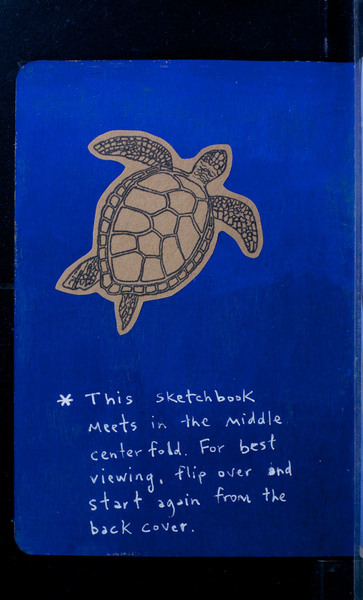 * This sketchbook
meets in the middle
centerfold. For best
viewing, flip over and
start again from the
back cover.